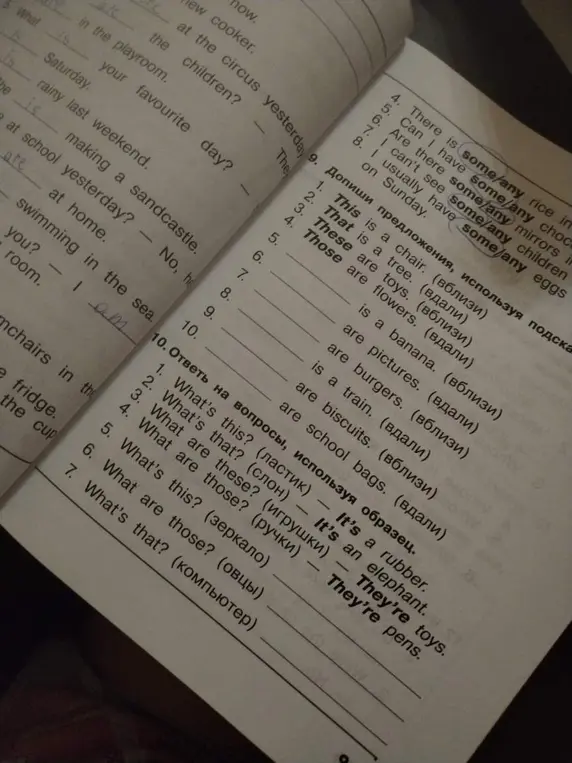 now.
new cooker.
at the circus yesterday
in the playroom.
What is the children? — They
is Saturday.
your favourite day? —
is rainy last weekend.
the is making a sandcastle.
at school yesterday? — No, h
are at home.
swimming in the sea
you? — I am
room.
mchairs in th
e fridge.
the cup
4. There is some/any rice in
5. Can I have some/any choc
6. Are there some/any mirrors i
7. I can't see some/any children
8. I usually have some/any eggs
on Sunday.
9. Допиши предложения, используя подска
1. This is a chair. (вблизи)
2. That is a tree. (вдали)
3. These are toys. (вблизи)
4. Those are flowers. (вдали)
5. is a banana. (вблизи)
6. are pictures. (вдали)
7. are burgers. (вблизи)
8. is a train. (вдали)
9. are biscuits. (вблизи)
10. are school bags. (вдали)
10. Ответь на вопросы, используя образец.
1. What's this? (ластик) — It's a rubber.
2. What's that? (слон) — It's an elephant.
3. What are these? (игрушки) — They're toys.
4. What are those? (ручки) — They're pens.
5. What's this? (зеркало)
6. What are those? (овцы)
7. What's that? (компьютер)
9